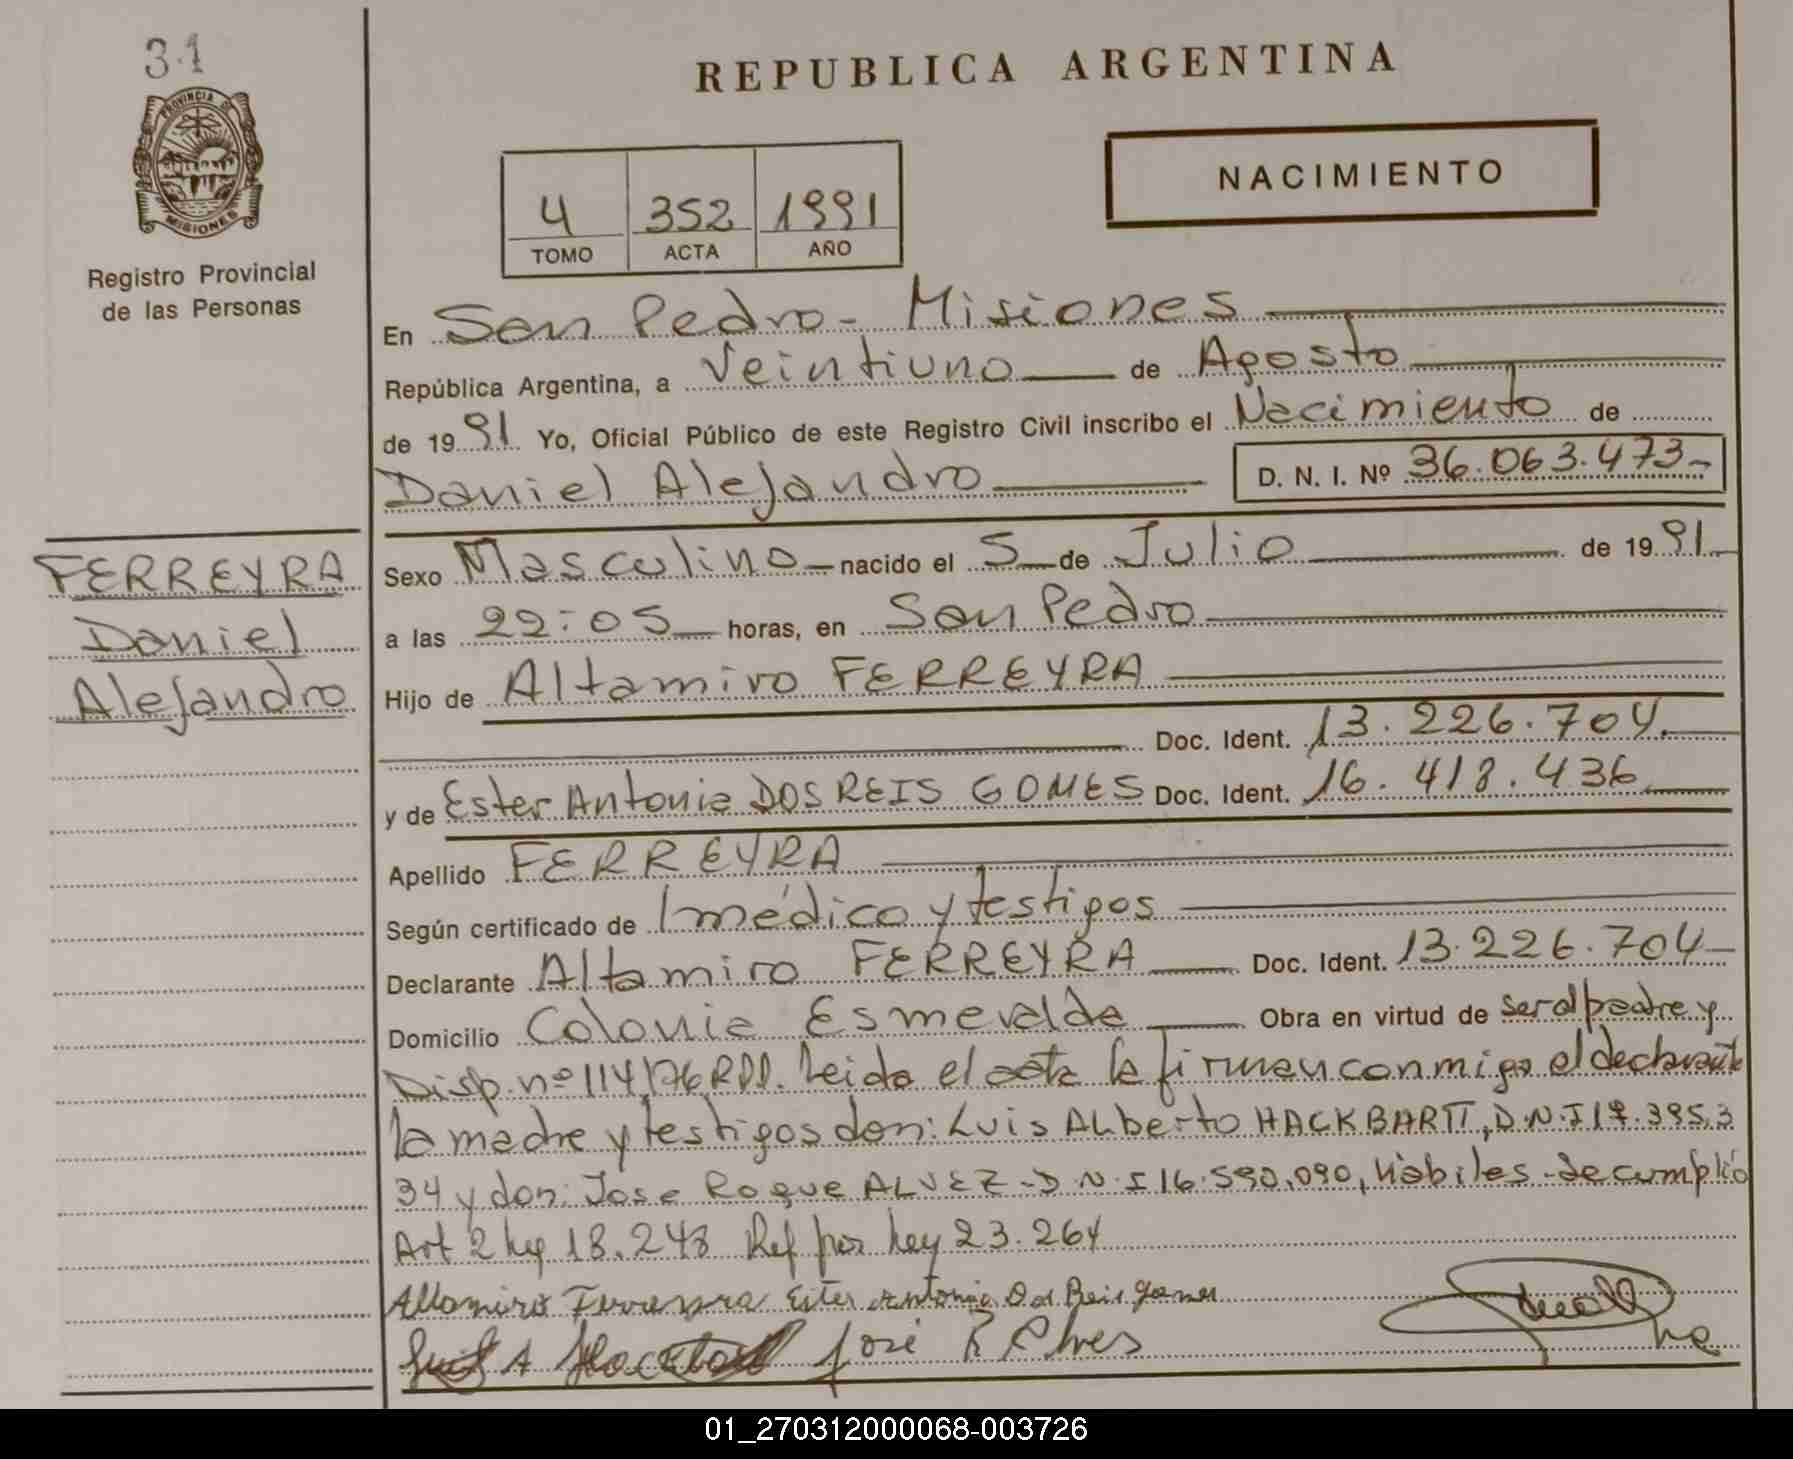 31
REPUBLICA ARGENTINA
PROVINCIA DE
MISIONES
Registro Provincial
de las Personas
4 352 1991
TOMO ACTA AÑO
NACIMIENTO
En San Pedro - Misiones
República Argentina, a Veintiuno de Agosto
de 1991 Yo, Oficial Público de este Registro Civil inscribo el Nacimiento de
Daniel Alejandro D. N. I. Nº 36.063.473-
FERREYRA
Daniel
Alejandro
Sexo Masculino nacido el 5 de Julio de 1991
a las 22:05 horas, en San Pedro
Hijo de Altamiro FERREYRA
Doc. Ident. 13.226.704.
y de Ester Antonia DOS REIS GOMES Doc. Ident. 16.418.436
Apellido FERREYRA
Según certificado de 1 médico y testigos
Declarante Altamiro FERREYRA Doc. Ident. 13.226.704
Domicilio Colonia Esmeralda Obra en virtud de ser el padre y
Disp. nº 114/76 Leida el acta la firman conmigo el declarante
la madre y testigos don: Luis Alberto HACKBARTT, D.N.I 17.395.3
34 y don: Jose Roque ALVEZ - D.N.I 16.590.090, hábiles - Se cumplió
Art 2 ley 18.248 Ref por Ley 23.264
Altamiro Ferreyra Ester Antonia Dos Reis Gomes
Luis A José R Alves
01_270312000068-003726